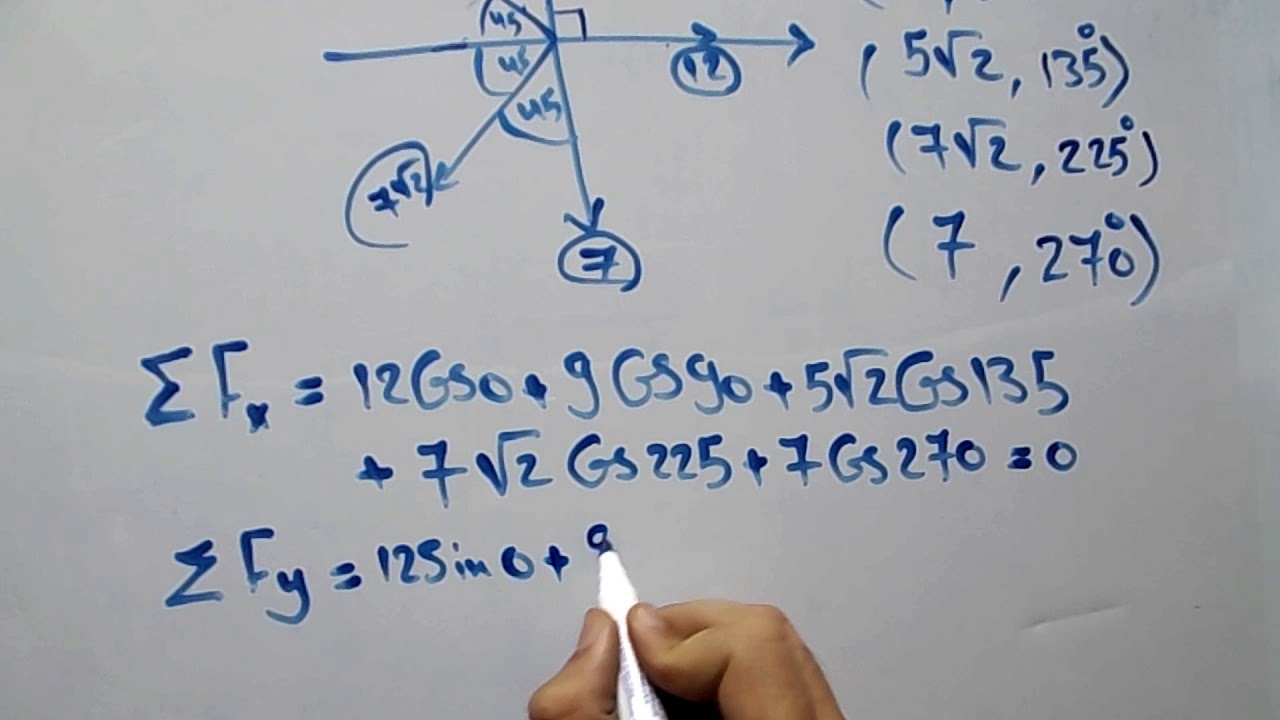 45
45
12
45
7√2
7
(5√2, 135°)
(7√2, 225°)
(7, 270°)
ΣFx = 12Cos0 + 9Cos90 + 5√2Cos135
+ 7√2 Cos225 + 7Cos270 = 0
ΣFy = 12Sin0 + 9